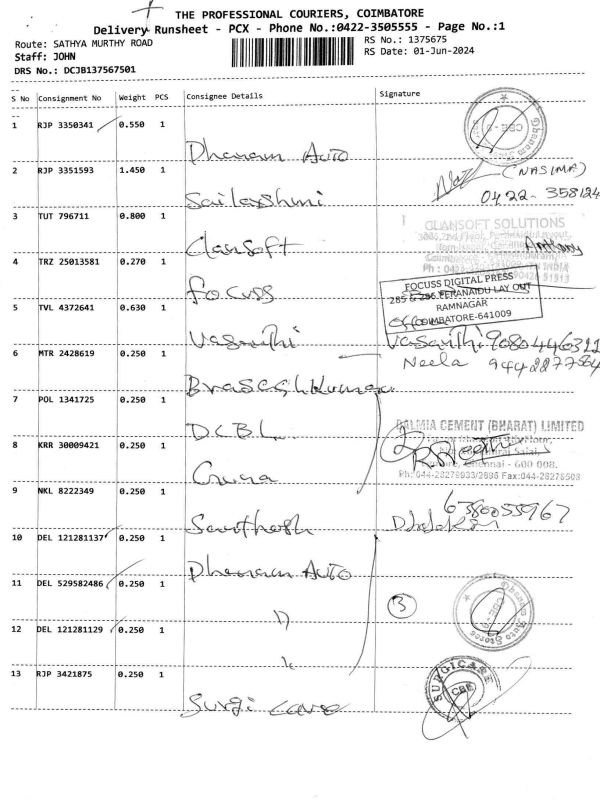 THE PROFESSIONAL COURIERS, COIMBATORE
Delivery Runsheet - PCX - Phone No.:0422-3505555 - Page No.:1
Route: SATHYA MURTHY ROAD
RS No.: 1375675
Staff: JOHN
RS Date: 01-Jun-2024
DRS No.: DCJB137567501
S No Consignment No Weight PCS Consignee Details Signature
1 RJP 3350341 0.550 1
Dhanam Auto
2 RJP 3351593 1.450 1
(NASIMA)
0422-358124
Sailaxshmi
3 TUT 796711 0.800 1
CLANSOFT SOLUTIONS
Anthony
Clansoft
4 TRZ 25013581 0.270 1
FOCUSS DIGITAL PRESS
285 & 286 PERANAIDU LAY OUT
RAMNAGAR
COIMBATORE-641009
Focuss
5 TVL 4372641 0.630 1
Vasanthi
Vasanthi
6 MTR 2428619 0.250 1
Neela
7 POL 1341725 0.250 1
DALMIA CEMENT (BHARAT) LIMITED
D.C.B.L.
8 KRR 30009421 0.250 1
Chennai - 600 008.
Guna
9 NKL 8222349 0.250 1
6380055967
Santhosh
10 DEL 121281137 0.250 1
Dhanam Auto
11 DEL 529582486 0.250 1
3
Dhanam Auto Stores
CBE-9
12 DEL 121281129 0.250 1
13 RJP 3421875 0.250 1
SURGICARE
CBE
Surgi care